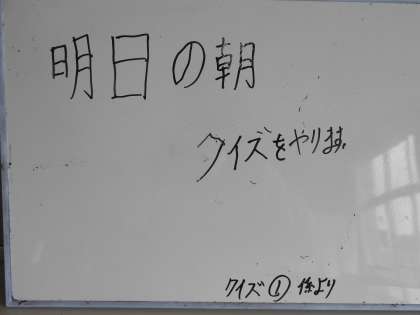 明日の朝
クイズをやります。
クイズ①係より